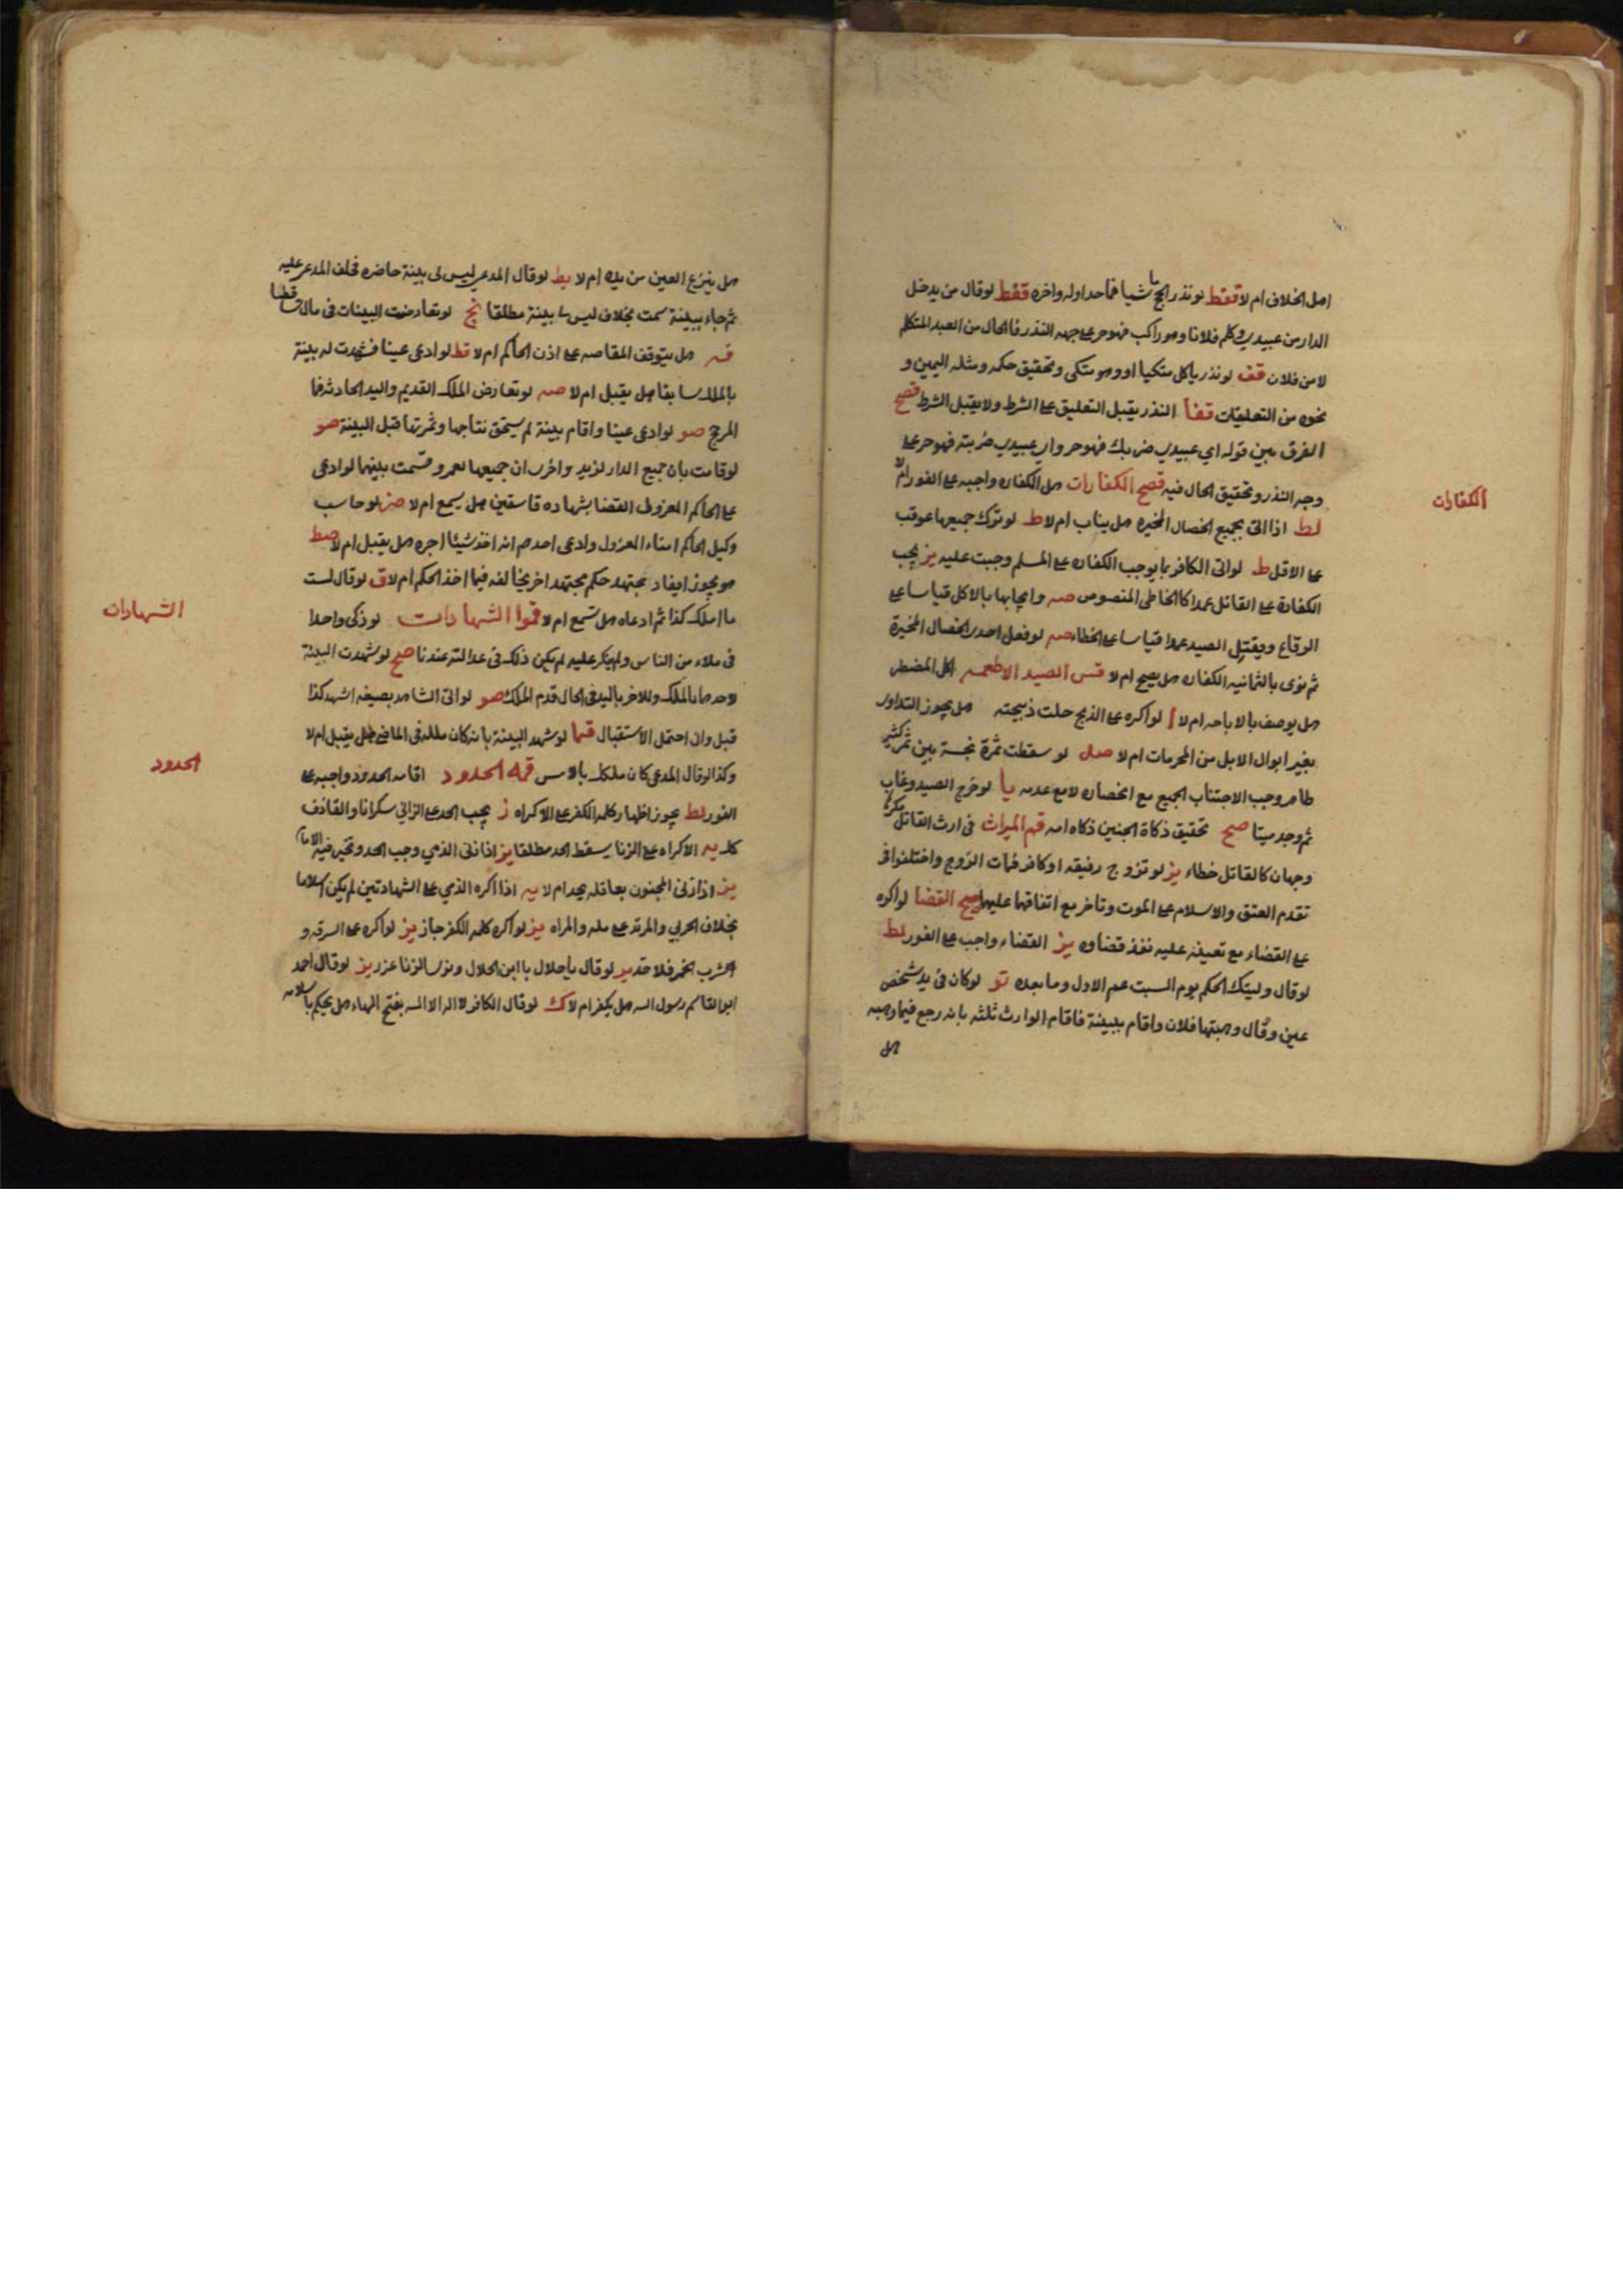 اصل الخلاف ام لا قفط لو نذر الحج ماشيا فما حد اوله واخره قفط لو قال من يدخل
الدار من عبيدي وكلم فلانا وهو راكب فهو حر على جهه النذر فالحال من العبد المتكلم
لا من فلان قف لو نذر ياكل متكيا او وهو متكى وتحقيق حكمه ومثله اليمين و
نحوه من التعليقات قفا النذر يقبل التعليق على الشرط ولا يقبل الشرط قصح
الفرق بين قوله اي عبيدي ضربك فهو حر واي عبيدي ضربته فهو حر على
وجه النذر وتحقيق الحال فيه قصح الكفارات هل الكفاره واجبه على الفور ام لا
الكفارات
لط اذا اتى بجميع الخصال المخيره هل يثاب ام لا ط لو ترك جميعها عوقب
على الاقل ط لو اتى الكافر بما يوجب الكفاره على المسلم وجبت عليه يز يجب
الكفارة على القاتل عمدا كالخاطى المنصوص صه وايجابها بالاكل قياسا على
الوقاع وبقتل الصيد عمدا قياسا على الخطاء صه لو فعل احدى الخصال المخيرة
ثم نوى بالثانيه الكفاره هل يصح ام لا قس الصيد الاطعمه اكل المضطر
هل يوصف بالاباحه ام لا ا لو اكره على الذبح حلت ذبيحته هل يجوز التداوى
بغير ابوال الابل من المحرمات ام لا صل لو سقطت ثمرة نجسة بين ثمر كثير
طاهر وجب الاجتناب الجميع مع انحصاره لا مع عدمه يا لو خرج الصيد وغاب
ثم وجد ميتا صح تحقيق ذكاة الجنين ذكاه امه قهم الميراث فى ارث القاتل مكرها
وجهان كالقاتل خطاء يز لو تزوج رفيقه او كافر فمات الزوج واختلفوا فى
تقدم العتق والاسلام على الموت وتاخر مع اتفاقهما عليهما صح القضا لو اكره
على القضاء مع تعينه عليه نفذ قضاوه يز القضاء واجب على الفور لط
لو قال وليتك الحكم يوم السبت عم الاول وما بعده تو لو كان فى يد شخص
عين وقال وهبتها فلان واقام ببينة فاقام الوارث ثلثه بانه رجع فيما وهبه
هل
هل ينزع العين من يده ام لا يط لو قال المدعي ليس لى بينة حاضره فحلف المدعى عليه
ثم جاء ببينة سمعت بخلاف ليس لى بينة مطلقا نج لو تعارضت البينات فى مال
قه هل يتوقف المقاصه على اذن الحاكم ام لا قط لو ادعى عينا فشهدت له بينة
بالملك سابقا هل يقبل ام لا صه لو تعارض الملك القديم واليد الحادثه فما
المرجح صو لو ادعى عينا واقام بينة لم يستحق نتاجها وثمرتها قبل البينة صو
لو قامت بان جميع الدار لزيد واخرى ان جميعها لعمرو قسمت بينهما لو ادعى
على الحاكم المعزول القضا بشهاده فاسقين هل يسمع ام لا صز لو حاسب
وكيل الحاكم امناء المعزول وادعى احدهم انه اخذ شيئا اجره هل يقبل ام لا صط
هو يجوز ايفاد مجتهد حكم مجتهد اخر يخالفه فيما اخذ الحكم ام لا ق لو قال لست
ما املك كذا ثم ادعاه هل تسمع ام لا قموا الشهادات لو ذكى واحدا
الشهادات
فى ملاء من الناس ولم ينكر عليه لم يكن ذلك فى عدالته عندنا صح لو شهدت البينة
لاحدهما بالملك وللاخر باليد فى الحال قدم الملك صو لو اتى الشاهد بصيغه اشهد كذا
قبل وان احتمل الاستقبال قما لو شهد البينة بانه كان ملكه فى الماضى هل يقبل ام لا
وكذا لو قال المدعى كان ملكك بالامس قمه الحدود اقامه الحدود واجبه على
الحدود
الفور لط يجوز اظهار كلمه الكفر على الاكراه ز يجب الحد على الزانى سكرانا والقاذف
كك يه الاكراه على الزنا يسقط الحد مطلقا يز اذا زنى الذمي وجب الحد وتخير فيه الامام
يز اذا زنى المجنون بعاقله يحد ام لا يه اذا اكره الذمي على الشهادتين لم يكن اسلاما
بخلاف الحربي والمرتد على مله والمراه يز لو اكره كلمه الكفر جاز يز لو اكره على السرقه و
الشرب الخمر فلا حد يد لو قال يا حلال يا ابن الحلال ونوى الزنا عزر يز لو قال احمد
ابو القاسم رسول الله هل يكفر ام لا ك لو قال الكافر لا اله الا الله بفتح الهاء هل يحكم باسلامه